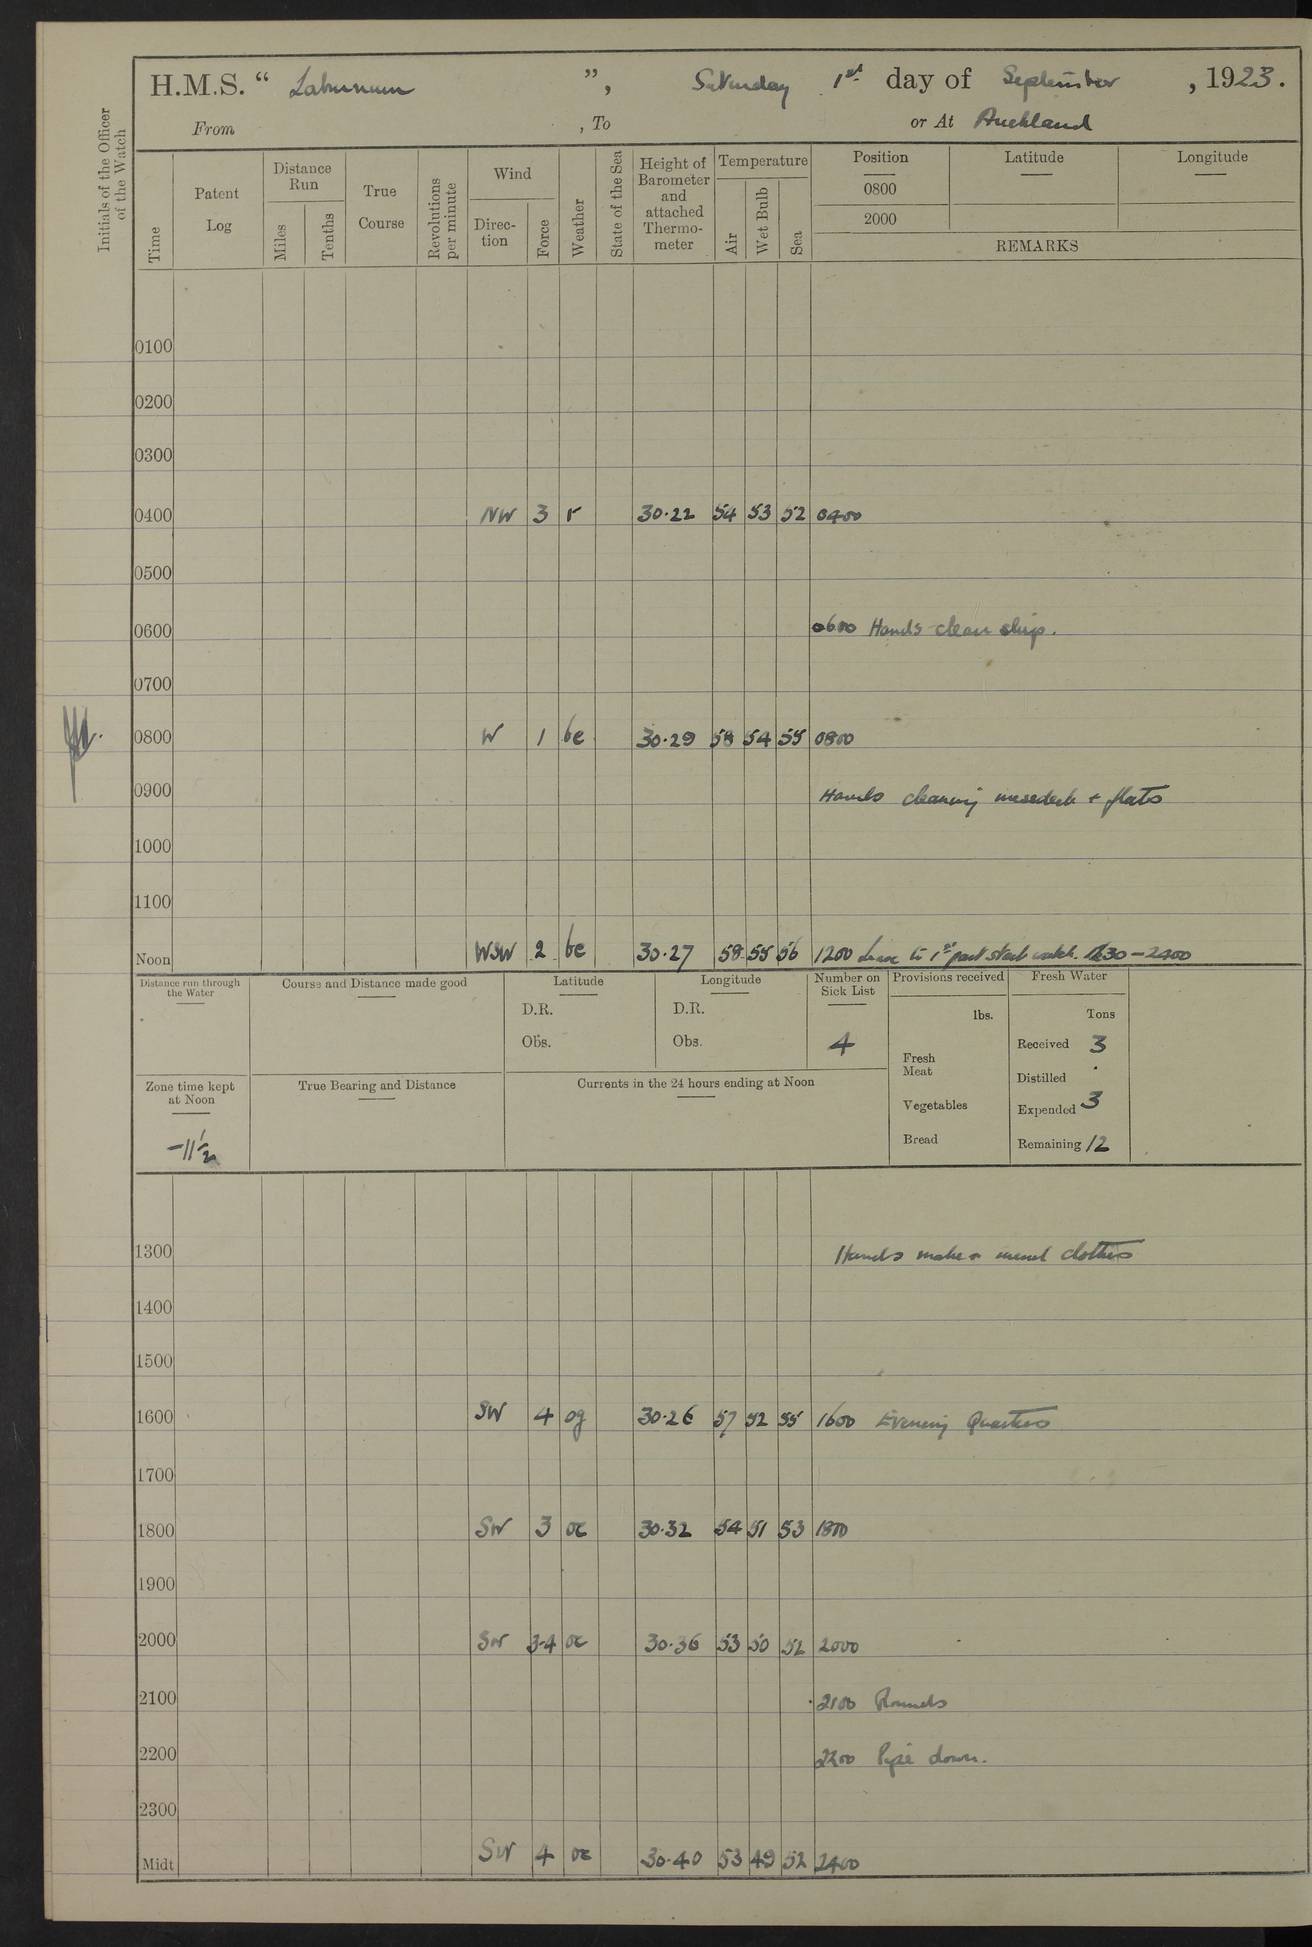 H.M.S. “ Laburnum ”, Saturday 1st day of September, 1923.
From , To or At Auckland
Initials of the Officer of the Watch
Time
Patent Log
Distance Run
Miles
Tenths
True Course
Revolutions per minute
Wind
Direc-tion
Force
Weather
State of the Sea
Height of Barometer and attached Thermo-meter
Temperature
Air
Wet Bulb
Sea
Position
0800
2000
Latitude
Longitude
REMARKS
0100
0200
0300
0400 NW 3 r 30·22 54 53 52 0400
0500
0600 0600 Hands clean ship.
0700
0800 W 1 bc 30·29 58 54 55 0800
0900 Hands cleaning messdeck + flats
1000
1100
Noon WSW 2 bc 30·27 58 55 56 1200 Leave to 1st part starb watch. 1230 – 2400
Distance run through the Water
Course and Distance made good
Latitude
D.R.
Obs.
Longitude
D.R.
Obs.
Number on Sick List
4
Provisions received
lbs.
Fresh Meat
Vegetables
Bread
Fresh Water
Tons
Received 3
Distilled ·
Expended 3
Remaining 12
Zone time kept at Noon
–11½
True Bearing and Distance
Currents in the 24 hours ending at Noon
1300 Hands make & mend clothes
1400
1500
1600 SW 4 og 30·26 57 52 55 1600 Evening Quarters
1700
1800 SW 3 oc 30·32 54 51 53 1800
1900
2000 SW 3-4 oc 30·36 53 50 52 2000
2100 2100 Rounds
2200 2200 Pipe down.
2300
Midt SW 4 oc 30·40 53 49 52 2400